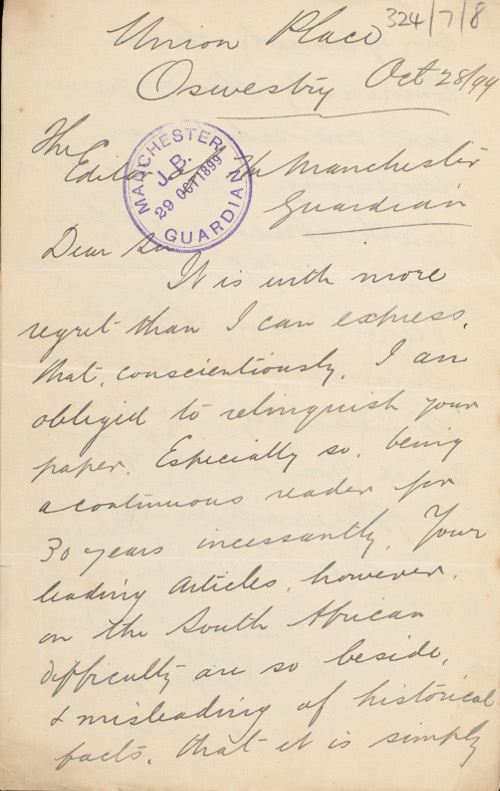 324/7/8
Union Place
Oswestry Oct 28/99
The
Editor of the Manchester
Guardian
MANCHESTER GUARDIAN
J.B.
29 OCT 1899
Dear Sir
It is with more
regret than I can express,
that, conscientiously, I am
obliged to relinquish your
paper. Especially so, being
a continuous reader for
30 years incessantly. Your
leading articles, however,
on the South African
difficulty are so beside,
& misleading of historical
facts, that it is simply